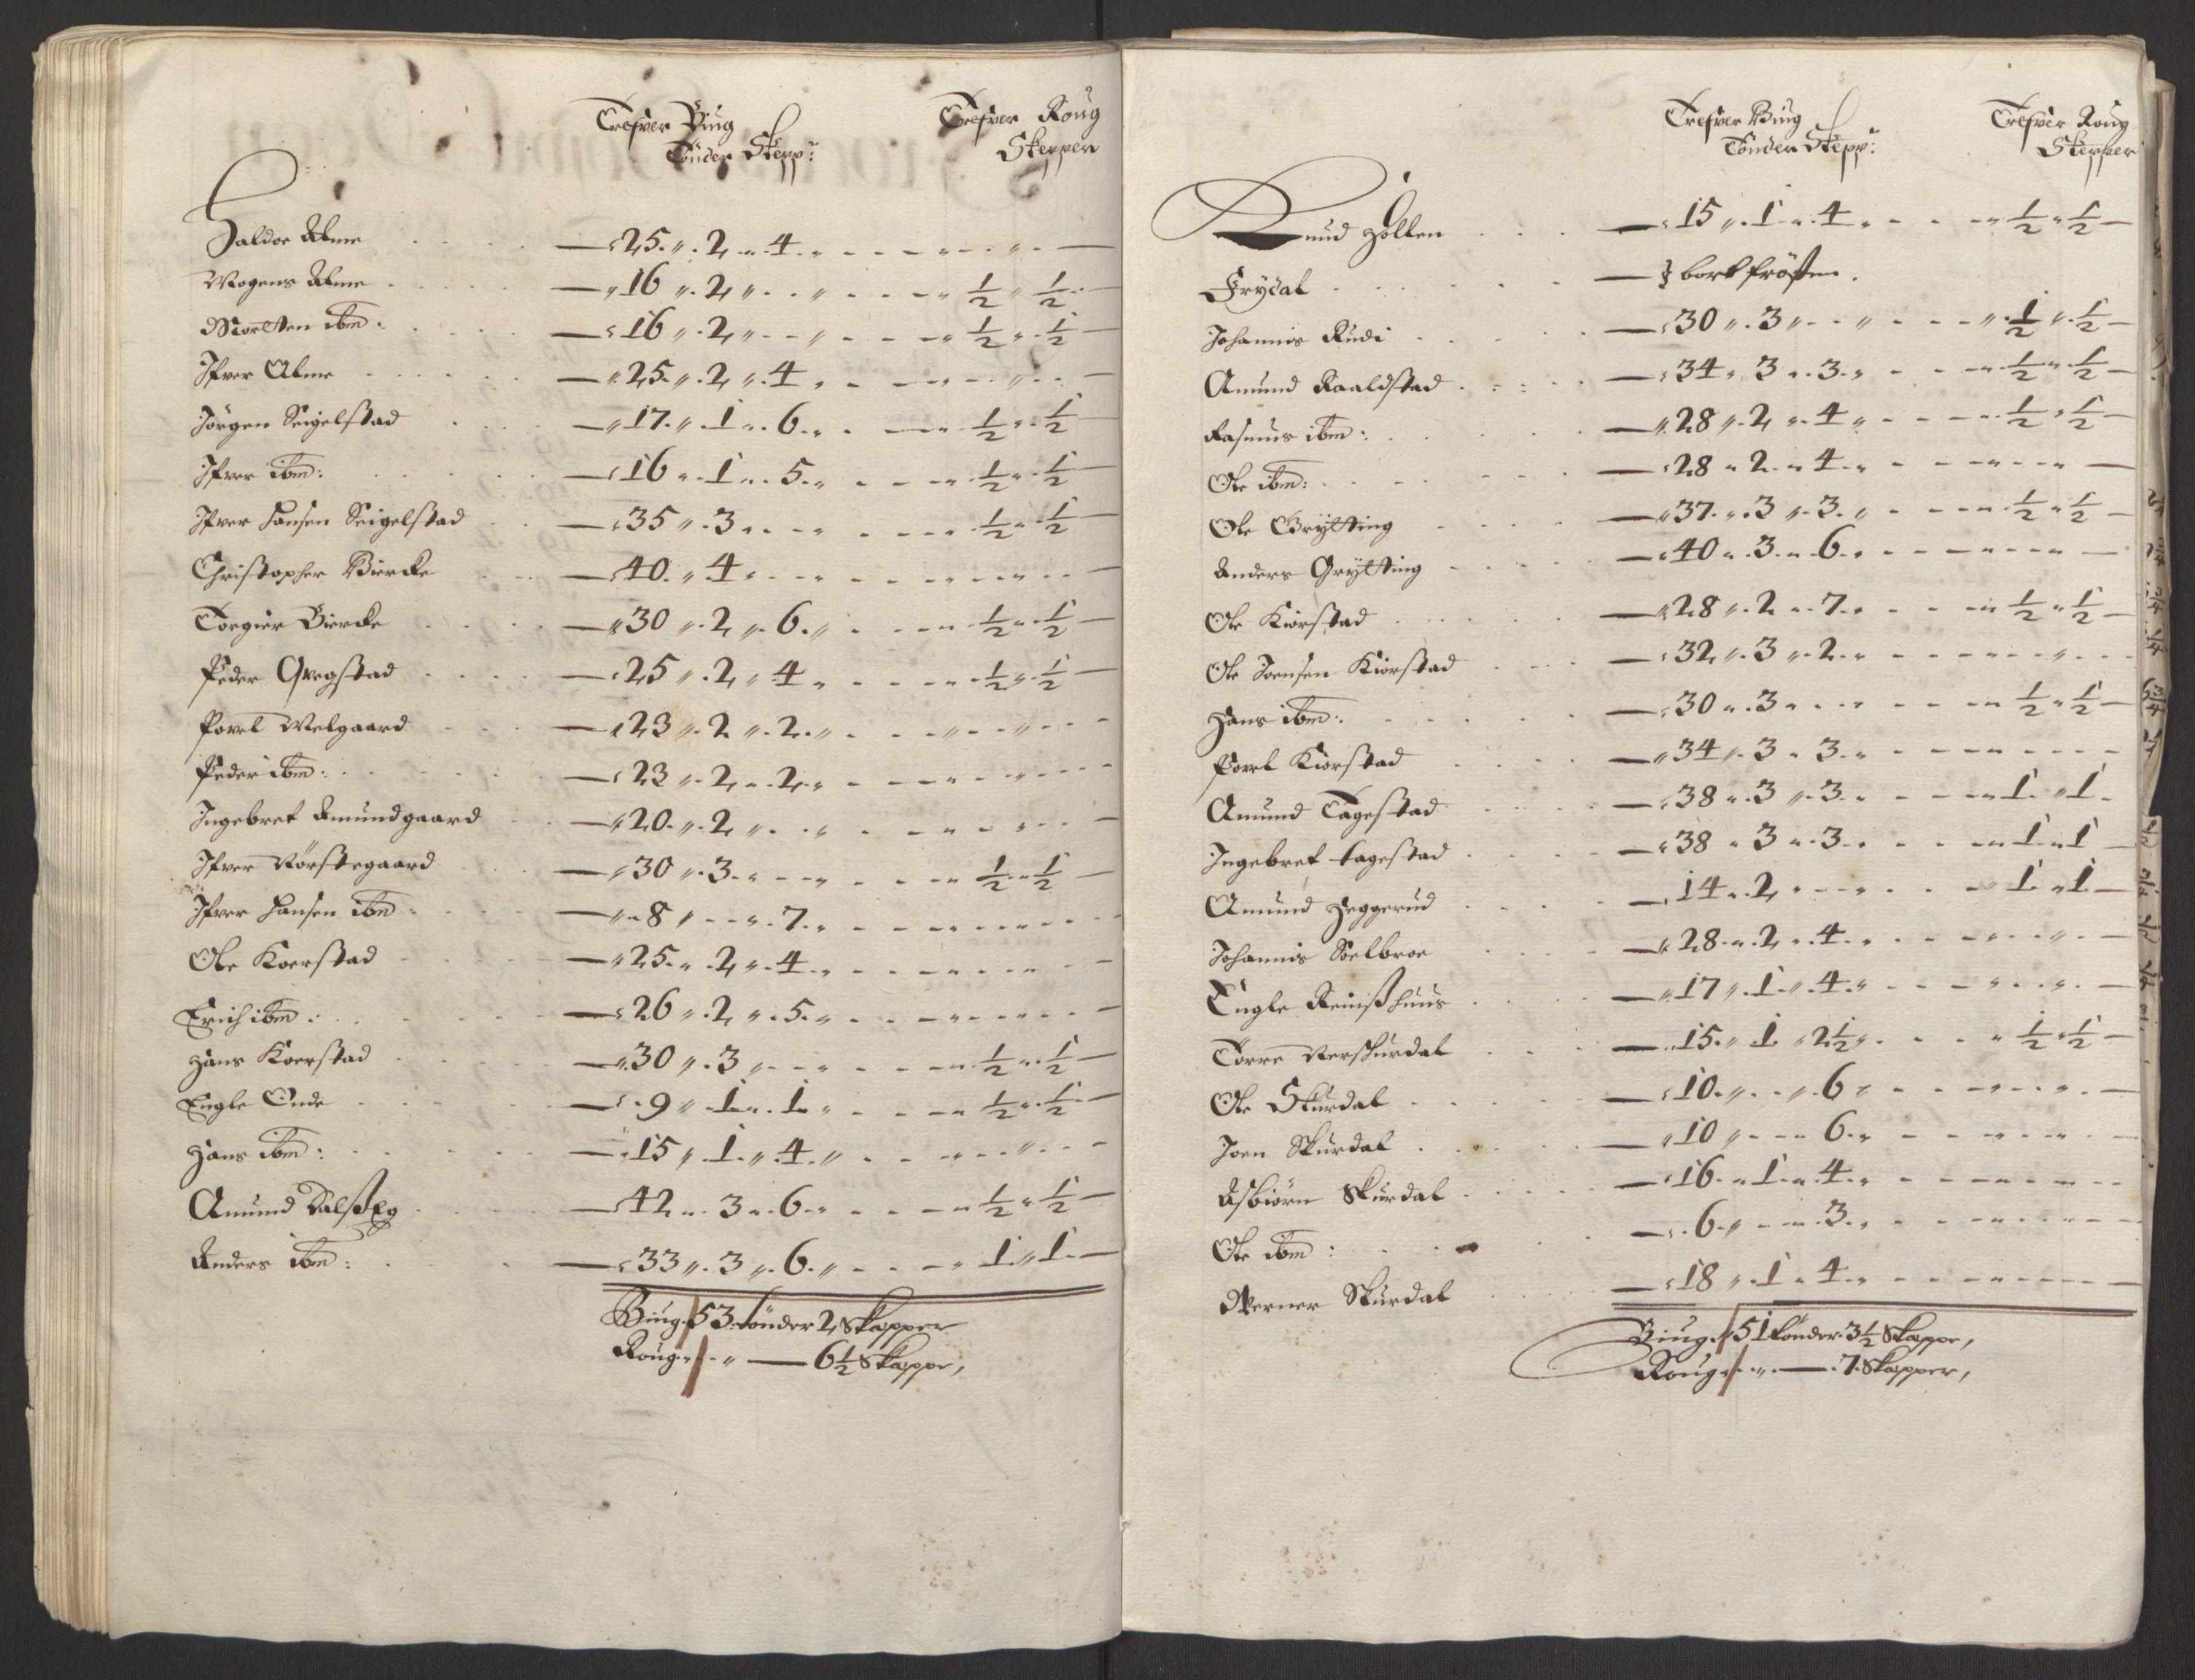 Trefver Biug Trefver Roug
Tönder Skepp: Skepper
Haldor Alme — 25 „ 2 „ 4 „
Mogens Alme — 16 „ 2 „ „ ½ „ ½
Morten ibm: — 16 „ 2 „ „ ½ „ ½
Ifver Alme — 25 „ 2 „ 4 „
Jörgen Seigelstad — 17 „ 1 „ 6 „ ½ „ ½
Ifver ibm: — 16 „ 1 „ 5 „ ½ „ ½
Ifver Hansen Seigelstad — 35 „ 3 „ „ ½ „ ½
Christopher Biercke — 40 „ 4 „
Torgier Biercke — 30 „ 2 „ 6 „ ½ „ ½
Peder Qvegstad — 25 „ 2 „ 4 „ ½ „ ½
Povel Melgaard — 23 „ 2 „ 2 „
Peder ibm: — 23 „ 2 „ 2 „
Ingebret Amundgaard — 20 „ 2 „
Ifver Nörstegaard — 30 „ 3 „ „ ½ „ ½
Ifver Hansen ibm: — 8 „ „ 7 „
Ole Koerstad — 25 „ 2 „ 4 „
Erich ibm: — 26 „ 2 „ 5 „
Hans Koerstad — 30 „ 3 „ „ ½ „ ½
Engle Onde — 9 „ 1 „ 1 „ ½ „ ½
Hans ibm: — 15 „ 1 „ 4 „
Amund Dalsæg — 42 „ 3 „ 6 „ ½ „ ½
Anders ibm: — 33 „ 3 „ 6 „ 1 „ 1
Biug 53 tönder 2 Skepper
Roug „ — 6½ Skeppe,
Trefver Biug Trefver Roug
Tönder Skepp: Skepper
Knud Hollen — 15 „ 1 „ 4 „ ½ „ ½
Frydal — bort frösen.
Johannis Rudi — 30 „ 3 „ „ ½ „ ½
Amund Raaldstad — 34 „ 3 „ 3 „ ½ „ ½
Rasmus ibm: — 28 „ 2 „ 4 „ ½ „ ½
Ole ibm: — 28 „ 2 „ 4 „
Ole Grytting — 37 „ 3 „ 3 „ ½ „ ½
Anders Grytting — 40 „ 3 „ 6 „
Ole Kiorstad — 28 „ 2 „ 7 „ ½ „ ½
Ole Joensen Kiorstad — 32 „ 3 „ 2 „
Hans ibm: — 30 „ 3 „ „ ½ „ ½
Povel Kiorstad — 34 „ 3 „ 3 „
Amund Tagestad — 38 „ 3 „ 3 „ 1 „ 1
Ingebret tagestad — 38 „ 3 „ 3 „ 1 „ 1
Amund Heggerud — 14 „ 2 „ „ 1 „ 1
Johannis Soelbroe — 28 „ 2 „ 4 „
Engle Reinsshuus — 17 „ 1 „ 4 „
Torre Nerskurdal — 15 „ 1 „ 2½ „ ½ „ ½
Ole Skurdal — 10 „ „ 6 „
Joen Skurdal — 10 „ „ 6 „
Asbiörn Skurdal — 16 „ 1 „ 4 „
Ole ibm: — 6 „ „ 3 „
Werner Skurdal — 18 „ 1 „ 4 „
Biug 51 tönder 3½ Skeppe,
Roug „ — 7 Skepper,